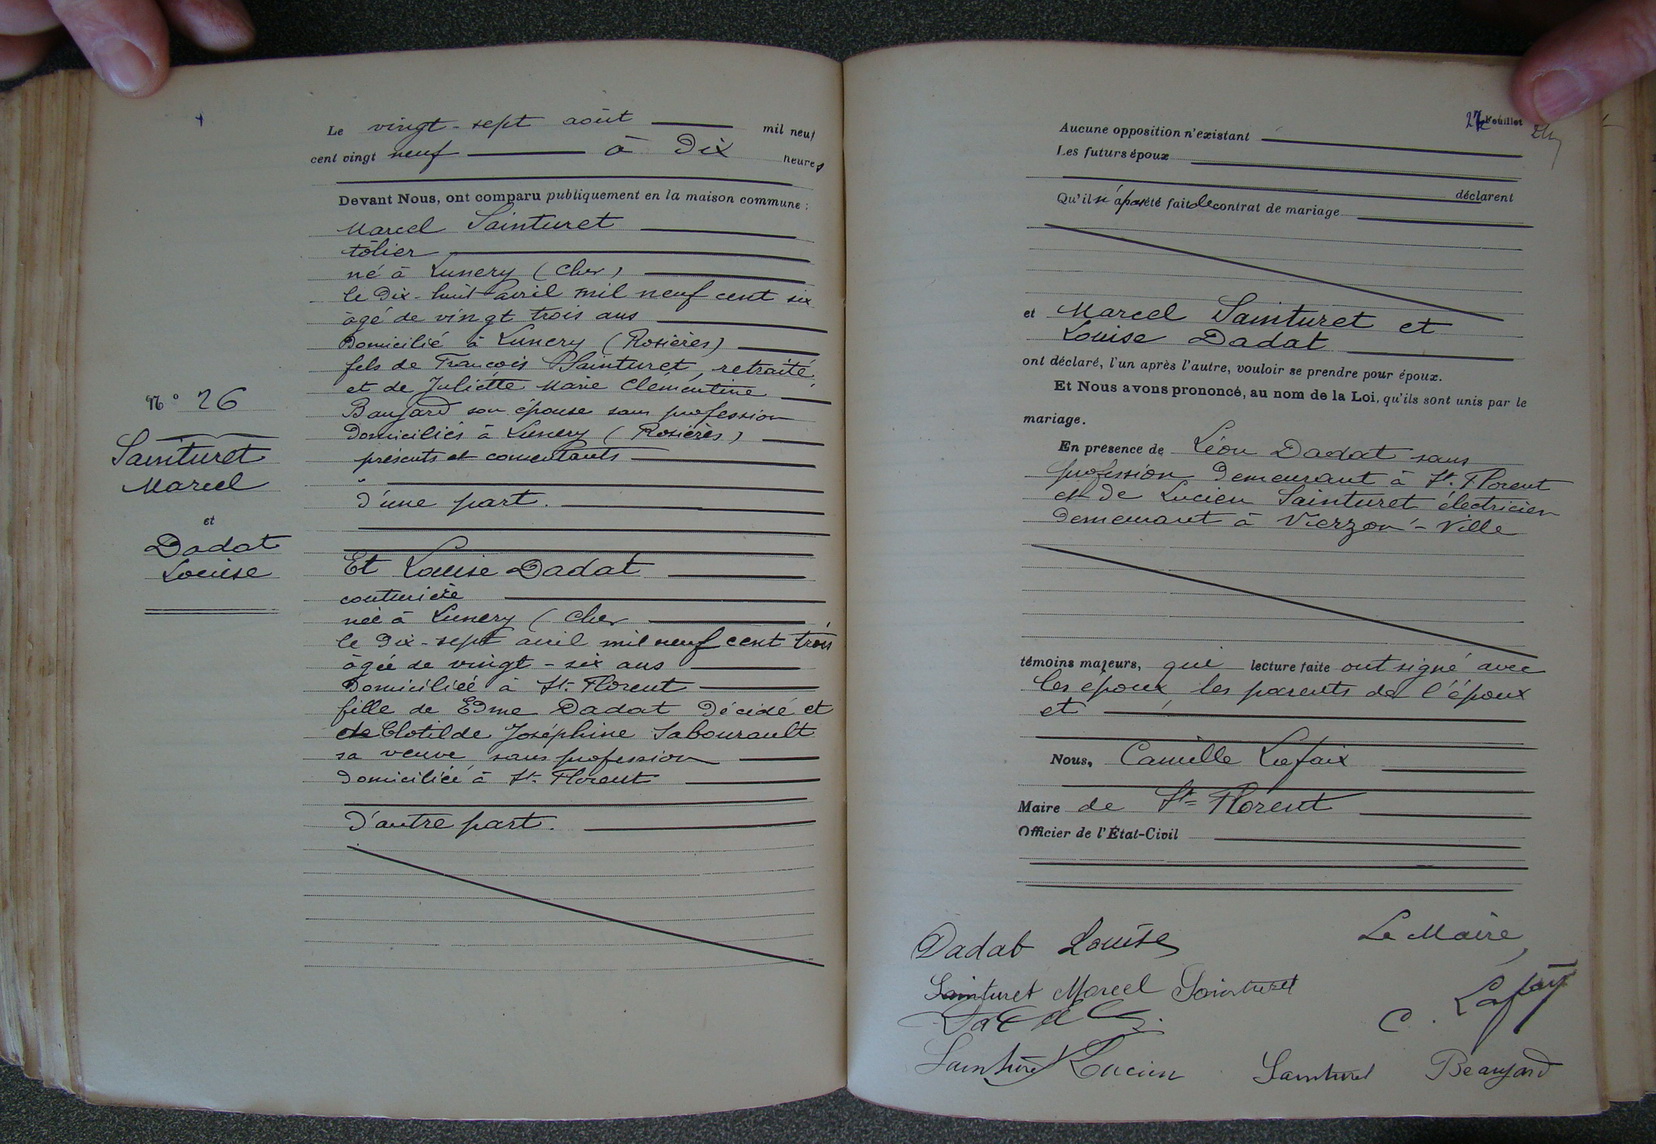 Le vingt-sept août mil neuf
cent vingt neuf à dix heures
Devant Nous, ont comparu publiquement en la maison commune :
Marcel Sainturet
tôlier
né à Lunery (Cher)
le dix-huit avril mil neuf cent six
âgé de vingt trois ans
domicilié à Lunery (Rosières)
fils de François Sainturet, retraité
et de Juliette Marie Clémentine
Baujard son épouse sans profession
domiciliés à Lunery (Rosières)
présents et consentants
d'une part.
N° 26
Sainturet
Marcel
et
Dadat
Louise
Et Louise Dadat
couturière
née à Lunery (Cher
le dix-sept avril mil neuf cent trois
âgée de vingt-six ans
domiciliée à St. Florent
fille de Edme Dadat décédé et
de Clotilde Joséphine Sabourault
sa veuve sans profession
domiciliée à St. Florent
d'autre part.
Feuillet
Aucune opposition n'existant
Les futurs époux
déclarent
Qu'il n'a pas été fait de contrat de mariage
et Marcel Sainturet et
Louise Dadat
ont déclaré, l'un après l'autre, vouloir se prendre pour époux.
Et Nous avons prononcé, au nom de la Loi, qu'ils sont unis par le
mariage.
En présence de Léon Dadat sans
profession demeurant à St. Florent
et de Lucien Sainturet électricien
demeurant à Vierzon-Ville
témoins majeurs, qui lecture faite ont signé avec
les époux les parents de l'époux
et
Nous, Camille Lafaix
Maire de St= Florent
Officier de l'État-Civil
Dadat Louise
Le Maire,
Sainturet Marcel Sainturet
C. Lafaix
Sainturet Lucien Sainturet Beaujard